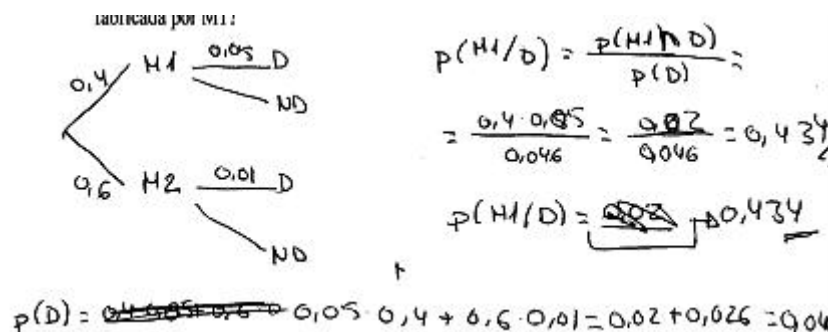 fabricada por M1?
0,4 M1 0,05 D
ND
0,6 M2 0,01 D
ND
p(M1/D) = p(M1∩D) / p(D) =
= 0,4·0,05 / 0,046 = 0,02 / 0,046 = 0,434
p(M1/D) = 0,02 → 0,434
p(D) = 0,05·0,4 + 0,6·0,01 = 0,02 + 0,026 = 0,04